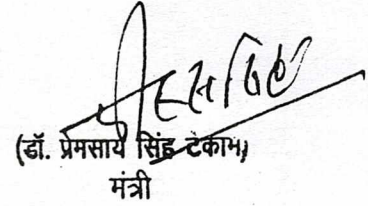 (डॉ. प्रेमसाय सिंह टेकाम)
मंत्री